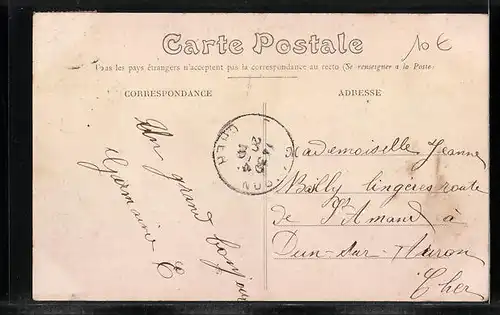 Carte Postale
10 €
Tous les pays étrangers n'acceptent pas la correspondance au recto (Se renseigner à la Poste)
CORRESPONDANCE
ADRESSE
Un grand bonjour
Germaine C
CHER
Mademoiselle Jeanne
Billy lingère route
de St Amand à
Dun-sur-Auron
Cher